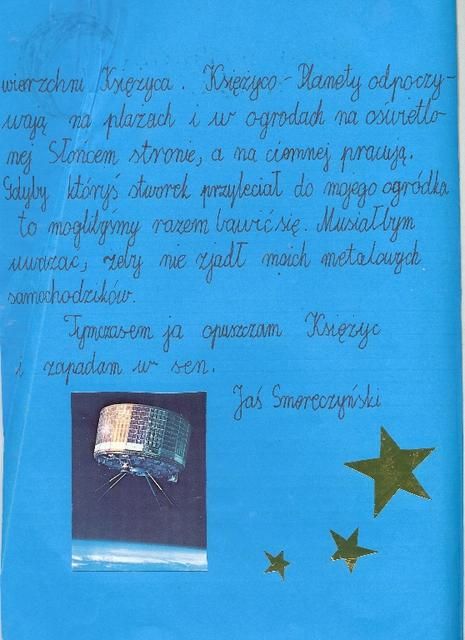 wierzchni Księżyca. Księżyco-Planety odpoczy-
wają na plażach i w ogrodach na oświetlo
nej Słońcem stronie, a na ciemnej pracują.
Gdyby któryś stworek przyleciał do mojego ogródka
to moglibyśmy razem bawić się. Musiałbym
uważać, żeby nie zjadł moich metalowych
samochodzików.
Tymczasem ja opuszczam Księżyc
i zapadam w sen.
Jaś Smoręczyński